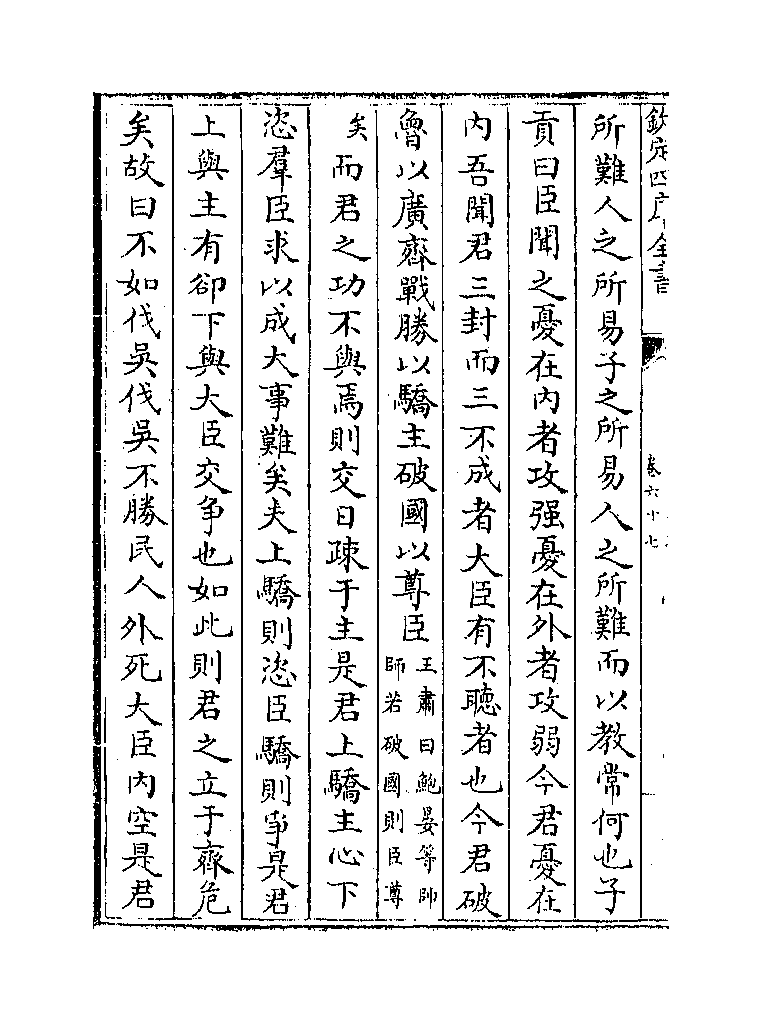 欽定四庫全書
卷六十七
所難人之所易子之所易人之所難而以教常何也子
貢曰臣聞之憂在内者攻强憂在外者攻弱今君憂在
内吾聞君三封而三不成者大臣有不聽者也今君破
魯以廣齊戰勝以驕主破國以尊臣王肅曰鮑晏等帥師若破國則臣尊
矣而君之功不與焉則交日疎于主是君上驕主心下
恣羣臣求以成大事難矣夫上驕則恣臣驕則爭是君
上與主有卻下與大臣交争也如此則君之立于齊危
矣故曰不如伐吳伐吳不勝民人外死大臣内空是君